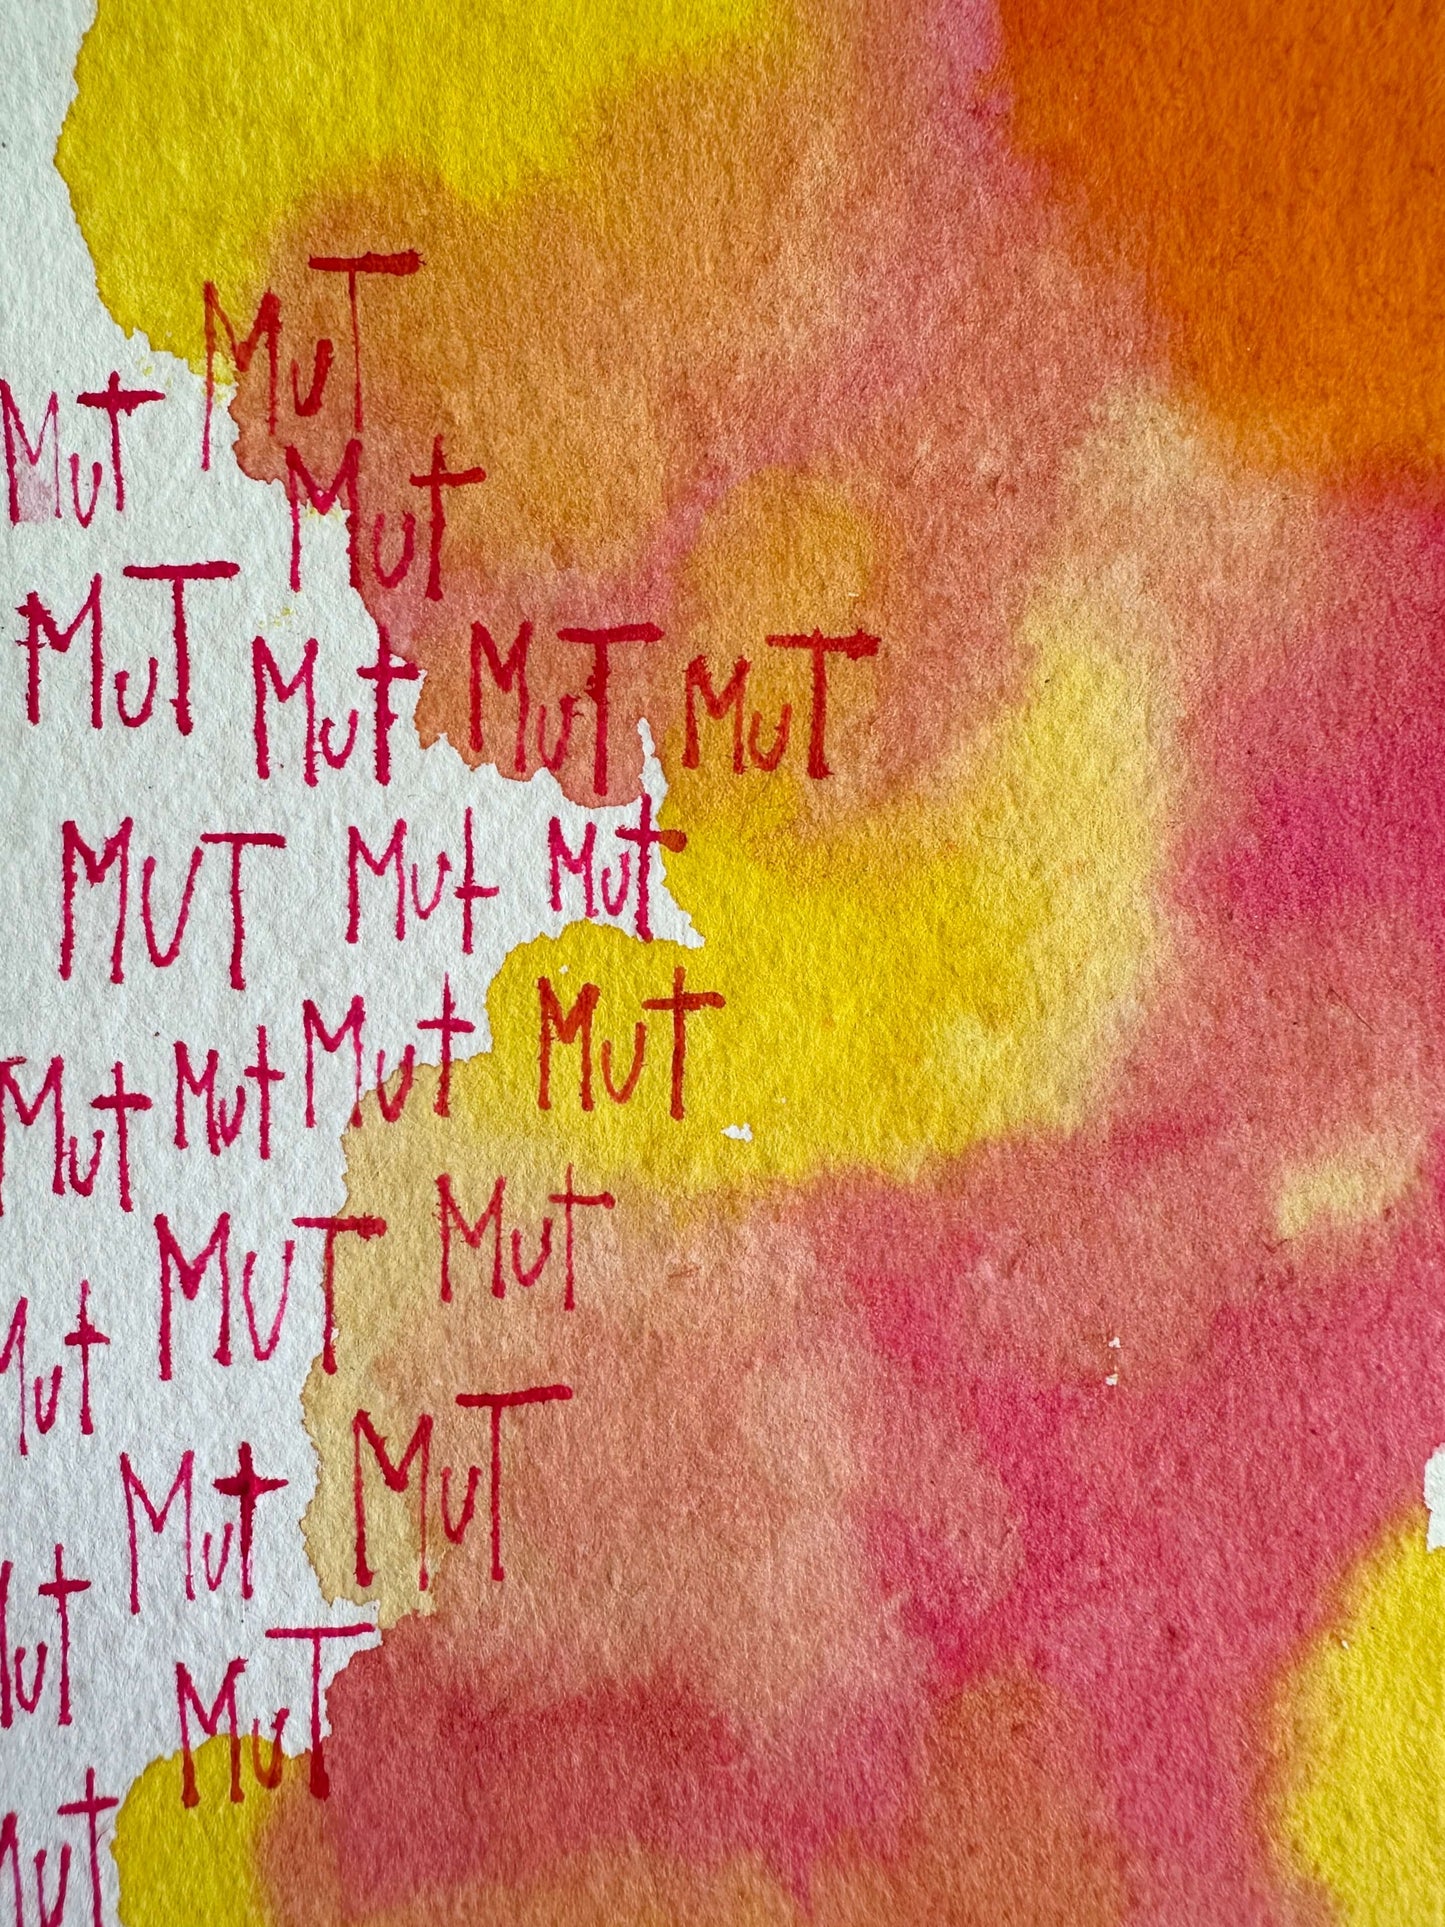 MuT
Mut
Mut
MuT Mut MuT MuT
MUT Mut Mut
Mut Mut Mut Mut
MUT Mut
Mut
Mut MuT
Mut
MuT
Mut